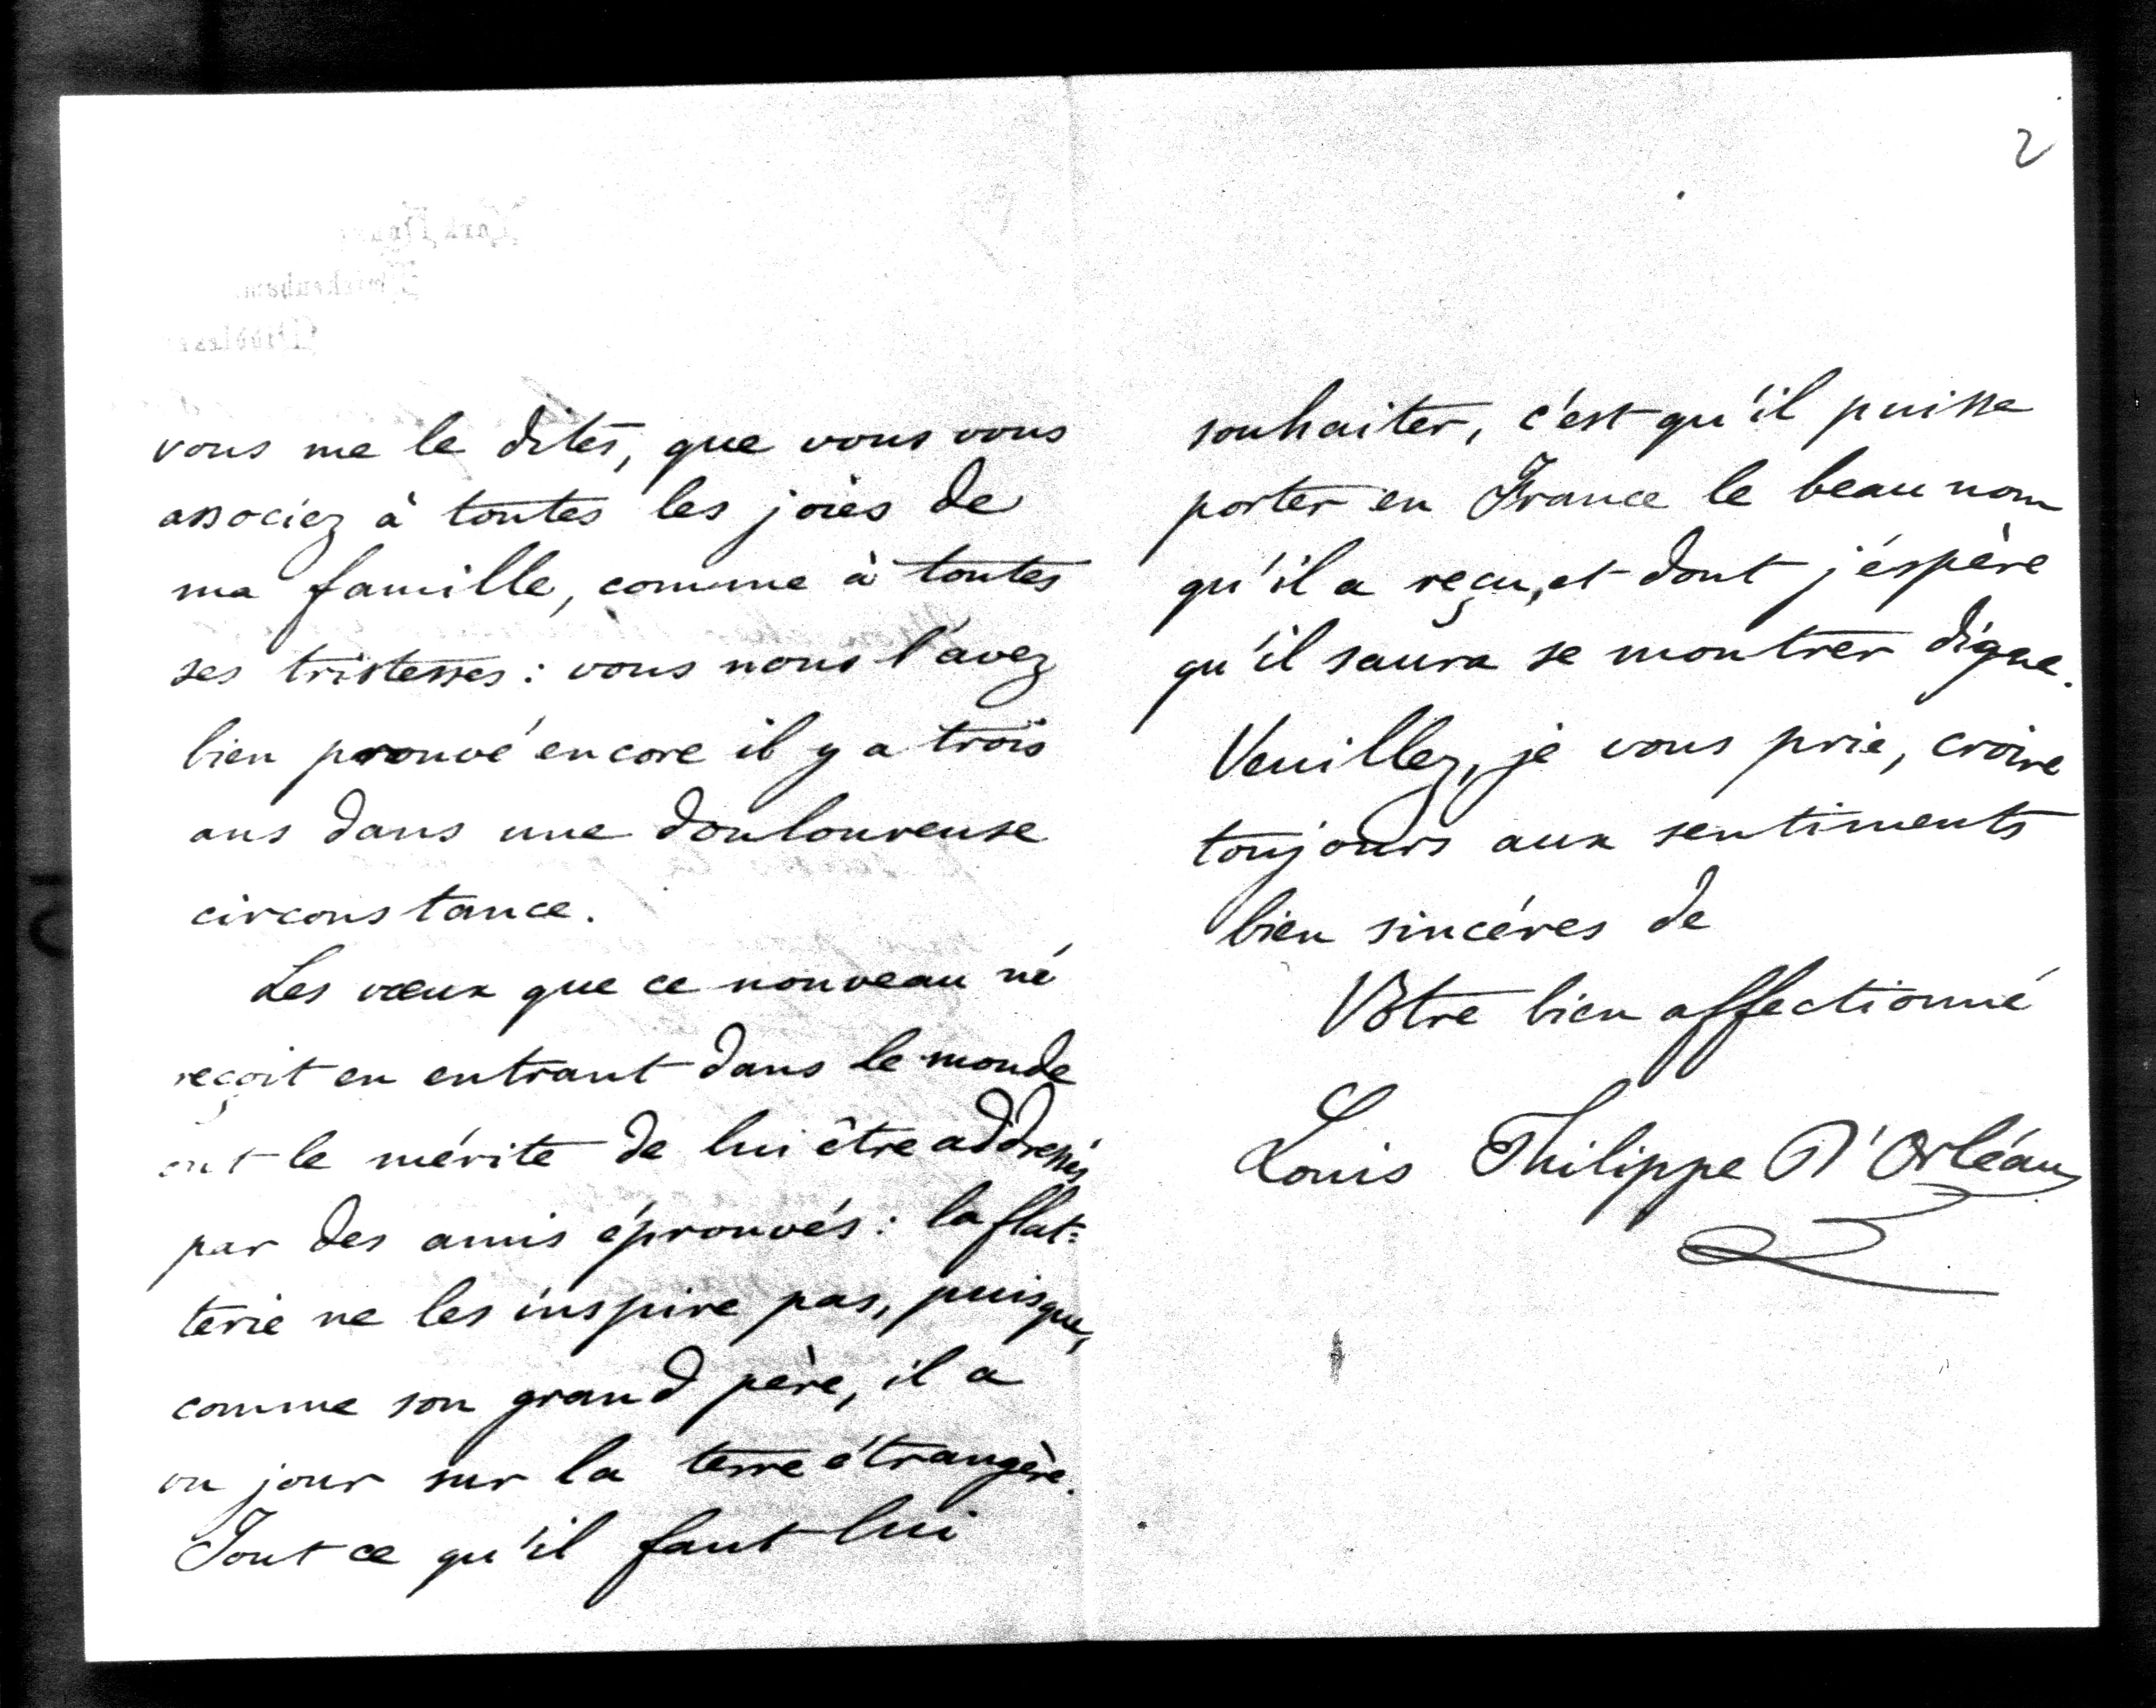 2
vous me le dites, que vous vous
associez à toutes les joies de
ma famille, comme à toutes
ses tristesses : vous nous l'avez
bien prouvé encore il y a trois
ans dans une douloureuse
circonstance.
Les vœux que ce nouveau né
reçoit en entrant dans le monde
ont le mérite de lui être addressés
par des amis éprouvés : la flat=
terie ne les inspire pas, puisque,
comme son grand père, il a
vu jour sur la terre étrangère.
Tout ce qu'il faut lui
souhaiter, c'est qu'il puisse
porter en France le beau nom
qu'il a reçu, et dont j'éspère
qu'il saura se montrer digne.
Veuillez, je vous prie, croire
toujours aux sentiments
bien sincéres de
Votre bien affectionné
Louis Philippe D'Orléans